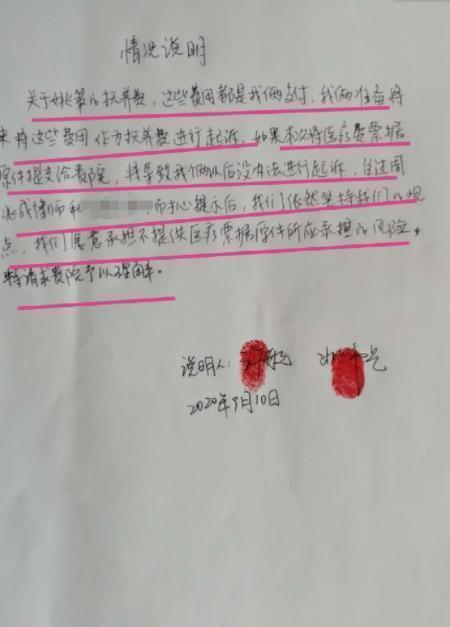 情况说明
关于姚策的扶养费，这些费用都是我俩支付，我俩准备将
来将这些费用作为扶养费进行起诉，如果本次将医疗费票据
原件提交给贵院，将导致我俩以后没办法进行起诉，在周
兆成律师和 耐心提示后，我们依然坚持我们的观
点，我们愿意承担不提供医疗票据原件所应承担的风险。
特请求贵院予以理解。
说明人：
2020年9月10日